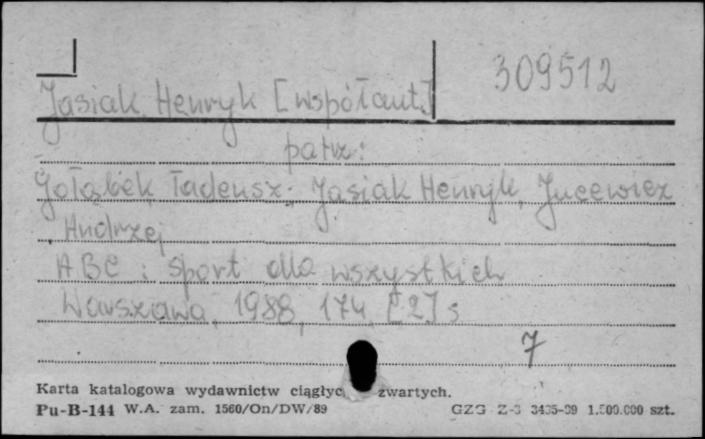 309512
Jasiak Henryk [współaut.]
patrz:
Gołąbek Tadeusz, Jasiak Henryk, Jucewicz
Andrzej
ABC : sport dla wszystkich
Warszawa, 1988, 174, [2] s
7
Karta katalogowa wydawnictw ciągłyc zwartych.
Pu-B-144 W.A. zam. 1560/On/DW/89 GZG Z-3 1.500.000 szt.